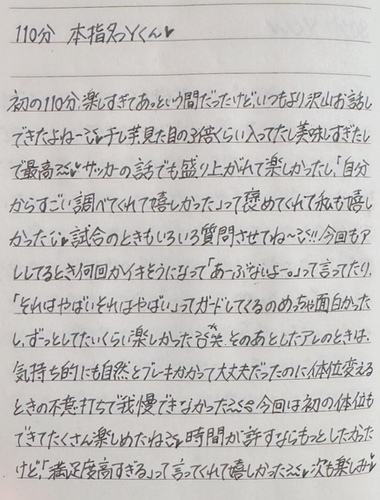 110分 本指名っYくん♥
初の110分、楽しすぎてあっという間だったけど、いつもより沢山お話し
できたよねー 干し芋見た目の3倍くらい入ってたし美味しすぎたし
で最高 サッカーの話でも盛り上がれて楽しかったし、「自分
からすごい調べてくれて嬉しかった」って褒めてくれて私も嬉し
かった 試合のときもいろいろ質問させてね〜!!今回もア
レしてるとき何回かイキそうになって「あーぶないよー。」って言ってたり、
「それはやばいそれはやばい」ってガードしてくるのめっちゃ面白かった
し、ずっとしてたいくらい楽しかった笑、そのあとしたアレのときは、
気持ち的にも自然とブレーキかかって大丈夫だったのに体位変える
ときの不意打ちで我慢できなかった 今回は初の体位も
できてたくさん楽しめたね 時間が許すならもっとしたかった
けど、「満足度高すぎる」って言ってくれて嬉しかった 次も楽しみ♥